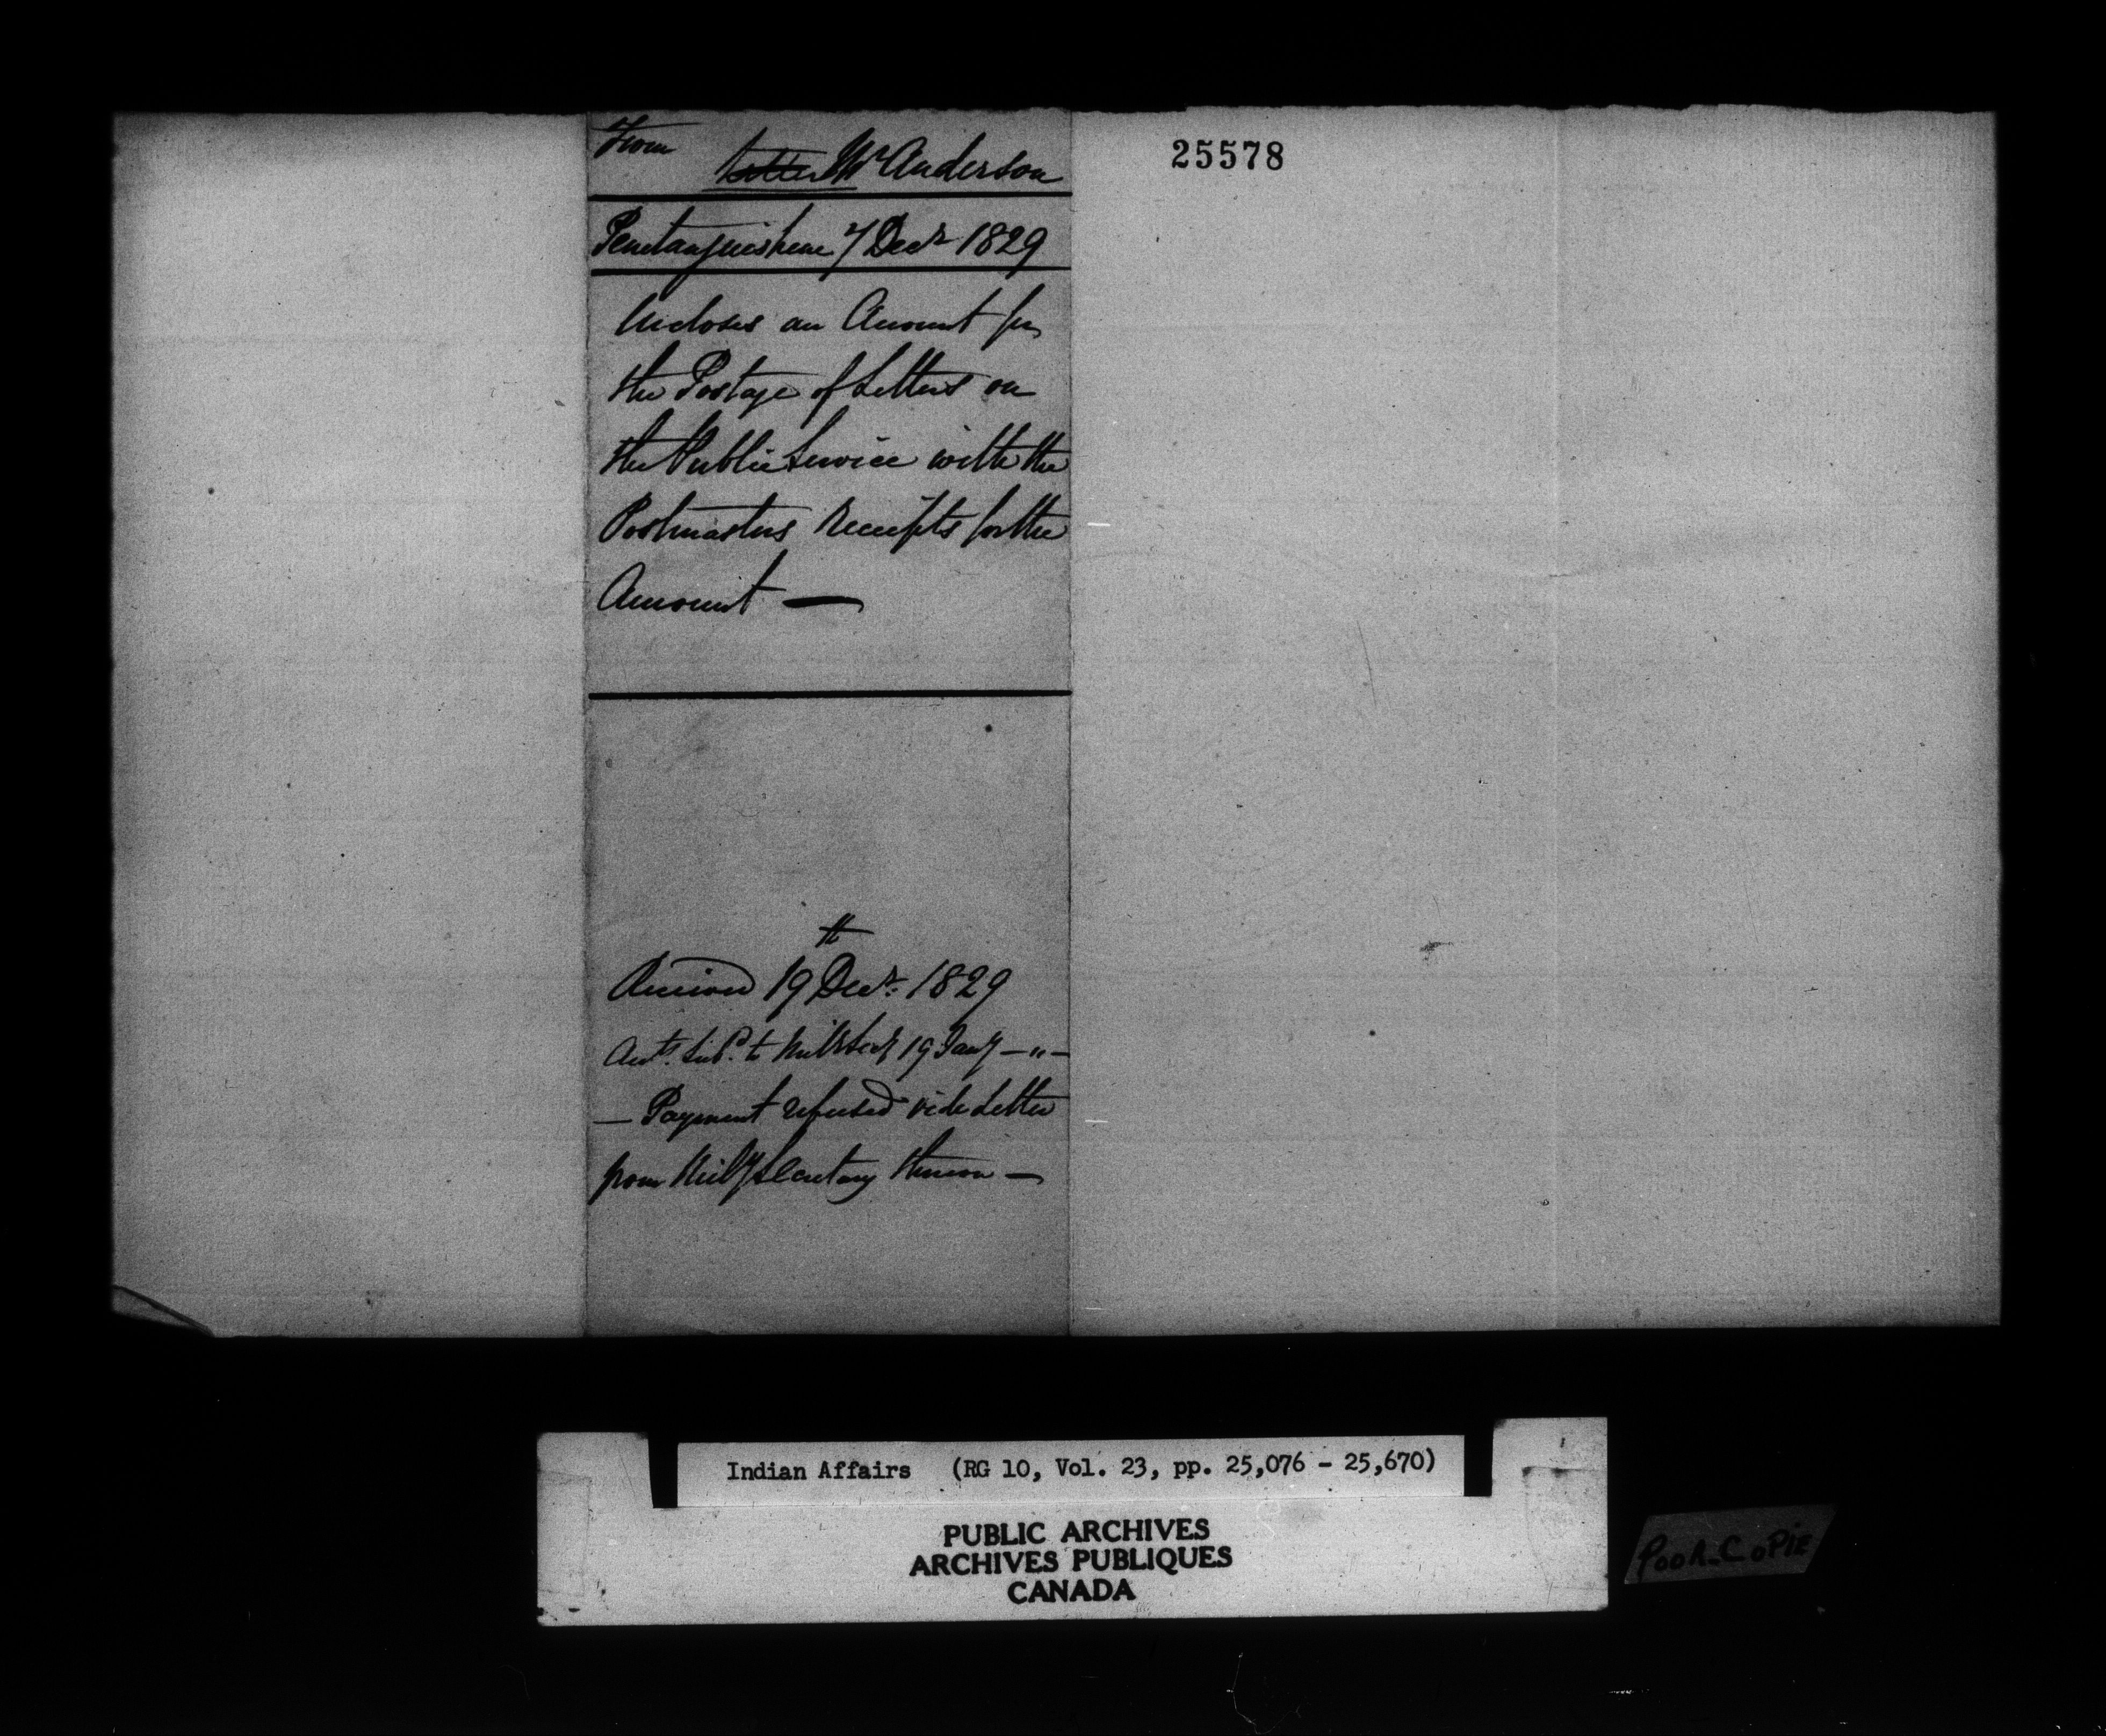 From
Letter Mr Anderson
Penetanguishene 7 Decr 1829
Incloses an Account for
the Postage of Letters on
the Public Service with the
Postmasters Receipts for the
Amount —
Received 19th Decr. 1829
to Mily Secy 19 Jany — " —
— Payment refused vide Letter
from Mily Secretary thereon —
25578
Indian Affairs (RG 10, Vol. 23, pp. 25,076 - 25,670)
PUBLIC ARCHIVES
ARCHIVES PUBLIQUES
CANADA
POOR COPIE